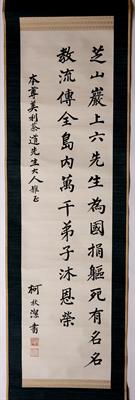 芝山巖上六先生為國捐軀死有名名
教流傳全島內萬千弟子沐恩榮
本尊美利茶道先生大人雅正
柯秋潔書